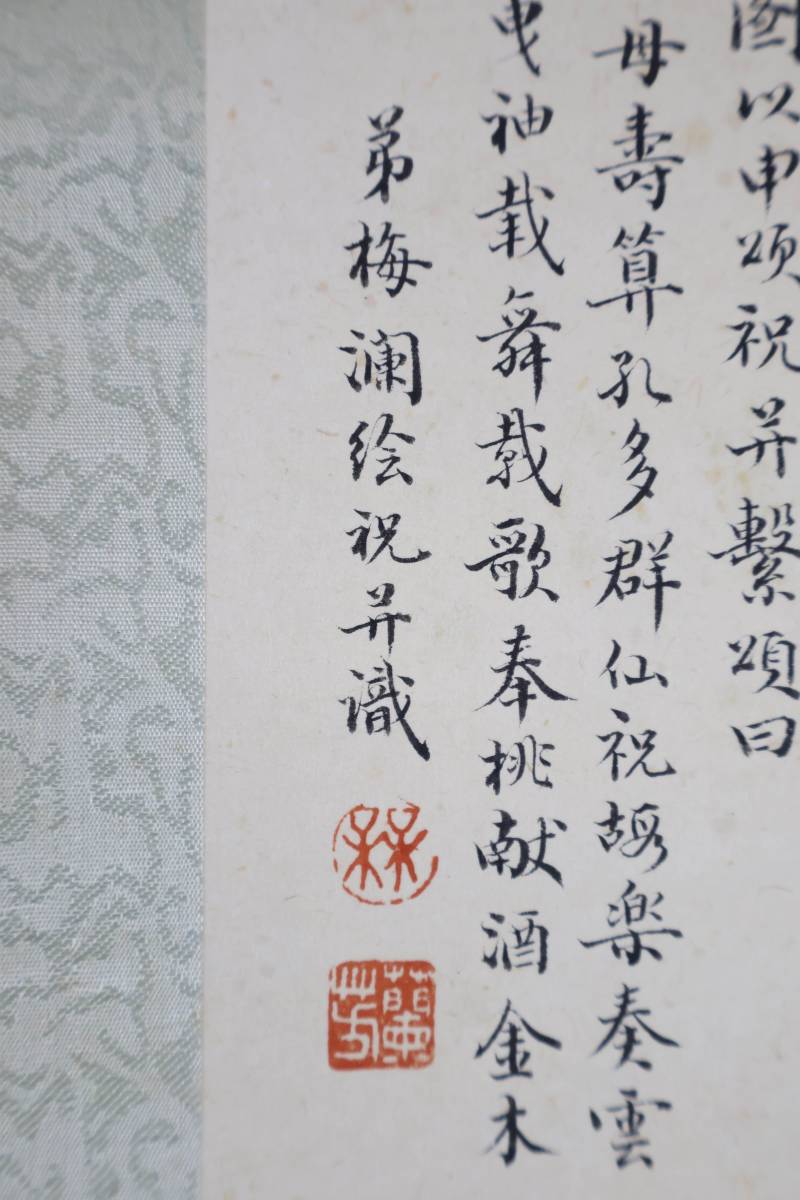 圖以申頌祝并繫頌曰
母壽算孔多群仙祝嘏楽奏雲
曳袖載舞載歌奉桃献酒金木
弟梅澜绘祝并識
蘭芳